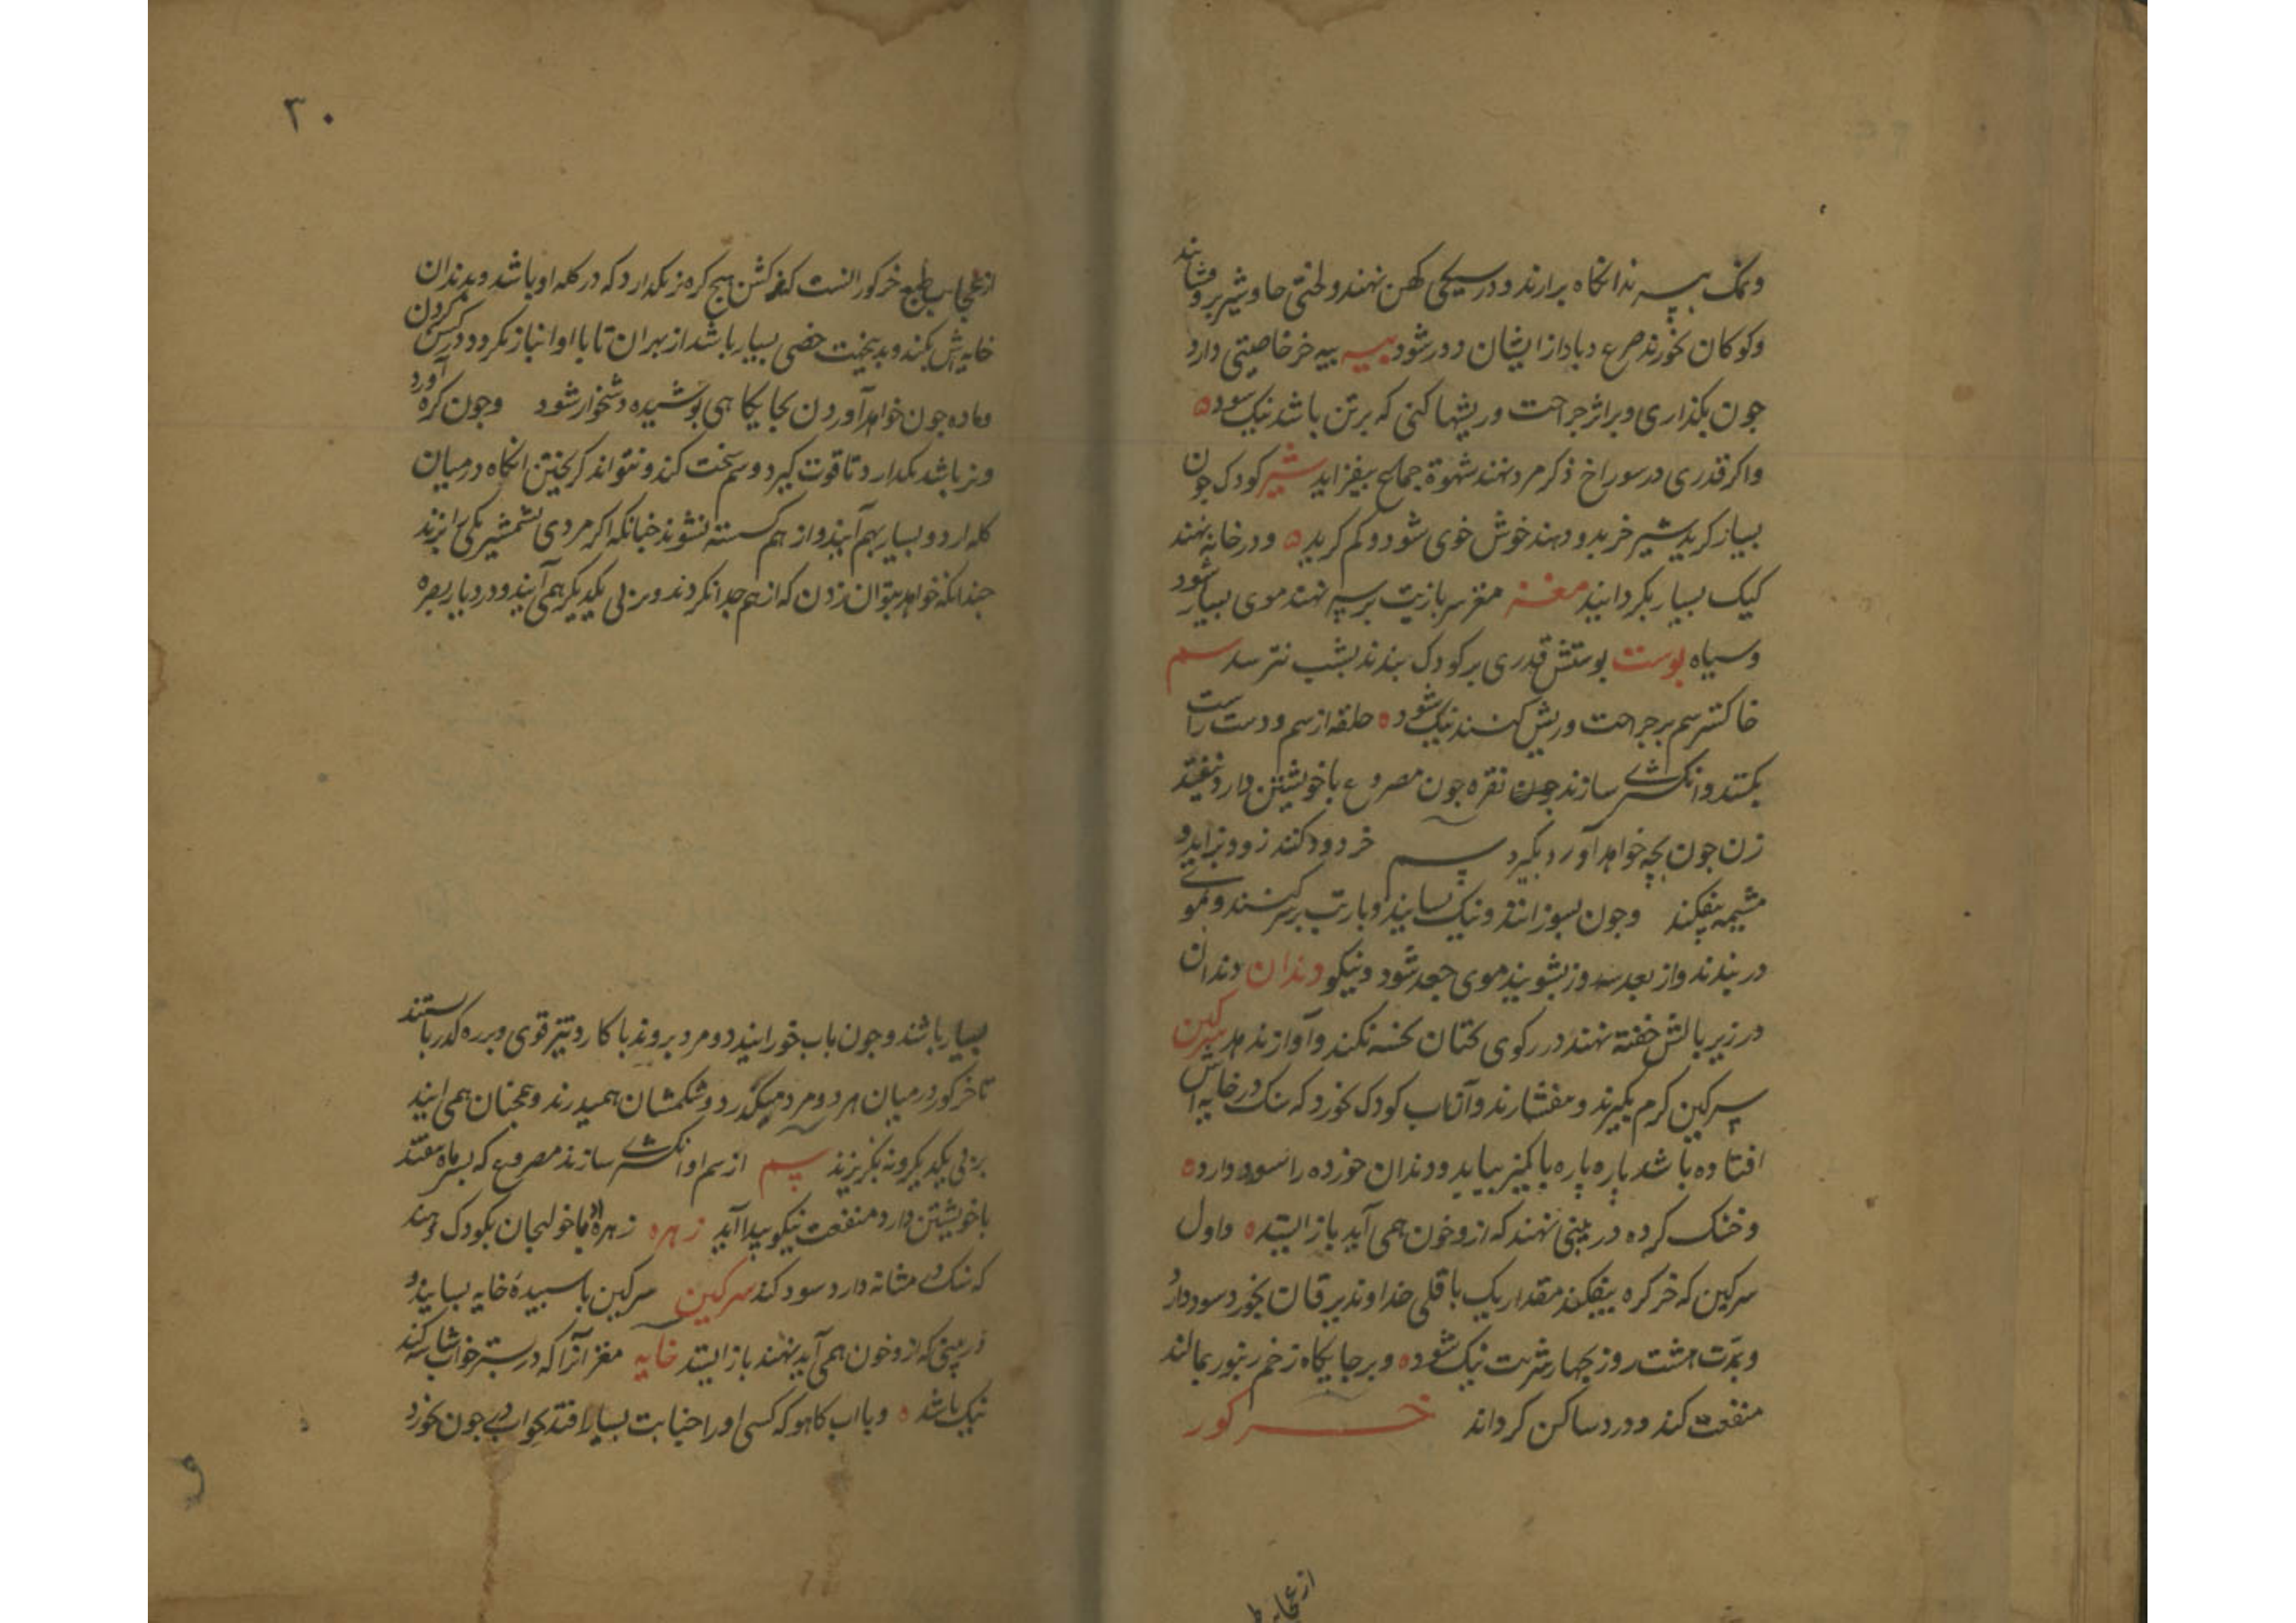 ونمک بپسه نداانکاه برارند و در سیکی کهن نهند و لختی جاوشیر بروفشانند
وکوکان بخورند صرع و باد از ایشان دور شود پیه پیه خر خاصیتی دارد
جون بکذاری و براثر جراحت و ریشها کنی که برتن باشد نیک سود
واکر قدری در سوراخ ذکر مرد نهند شهوة جماع بیفزاید شیر کودک جون
بسیار کرید شیر خر بدو دهند خوش خوی شود و کم کرید و در خانه نهند
کیک بسیار بکرد ایند مغز مغز سر با زیت برسر نهند موی بسیار شود
وسیاه پوست پوستش قدری بر کودک بندند بشب نترسد سم
خاکستر سم بر جراحت و ریش کنند نیک شود حلقه از سم و دست راست
بکنند وانکشتری سازند جون نقره جون مصروع با خویشتن دارد نیفتد
زن جون بچه خواهد آورد بگیرد سم خر دود کنند زود بزاید و
مشیمه بیفکند وجون بسوزانند و نیک بسایند و بازیت بر سر کنند و بموی
در بندند واز بعد سه روز بشویند موی جعد شود و نیکو دندان دندان
در زیر بالش خفته نهند در رکوی کتان نخسبد نکند وآواز ندهد سرکین
سرکین کرم بکیرند و مفشارند وآن آب کودک بخورد که سنک در خایه اش
افتاده باشد پاره پاره با کمیز بیاید و دندان خورده را سود دارد
وخنک کرده در بینی نهند که ازو خون همی آید باز ایستد واول
سرکین که خر کره بیفکند مقدار یک باقلی خداوند یرقان بخورد سود دارد
وبمدت هشت روز بچهار شربت نیک شود و بر جایکاه زخم زنبور بمالند
منفعت کند و درد ساکن کرداند خر کور
از عجایب ط
۳۰
از عجایب طبع خر کور آنست که فر کشن هیچ کره نر نکدارد که در کله او باشد و بدندان
خایه اش بکند و بدین جهت خصی بسیار باشد از بهر آن تا با او انباز نکردد در کشن کردن
وماده جون خواهد آوردن بجایکاهی پوشیده دشخوار شود وجون کره آورد
ونر باشد نکدارد تا قوت کیرد و سم سخت کند و نتواند کریختن آنکاه در میان
کله ارد و بسیار بهم آیند و از هم کسسته نشوند جنانکه اکر مردی بشمشیر یکی را بزند
جندانکه خواهد بتوان زدن که از هم جدا نکردند و بر پی یکدیکر همی آیند و در دیار بصره
بسیار باشند وجون باب خور آیند دو مرد بروند با کارد تیز قوی و بر ره کذر بایستند
تا خر کور در میان هر دو مرد میکذرد و شکمشان همیدرند و همجنان همی ایند
بر پی یکدیکر و نه بکریزند سم از سم او انکشتری سازند مصروع که بسر ماه بیفتد
با خویشتن دارد منفعت نیکو پیدا آید زهره زهره او با خولنجان بکودک دهند
که سنک در مثانه دارد سود کند سرکین سرکین با سپیدهٔ خایه بسایند و
در بینی که ازو خون همی آید نهند باز ایستد خایه مغز آنرا که در بستر خواب شاشه کند
نیک باشد و با آب کاهو که کسی او را جنابت بسیار افتد بخواب در جون بخورد